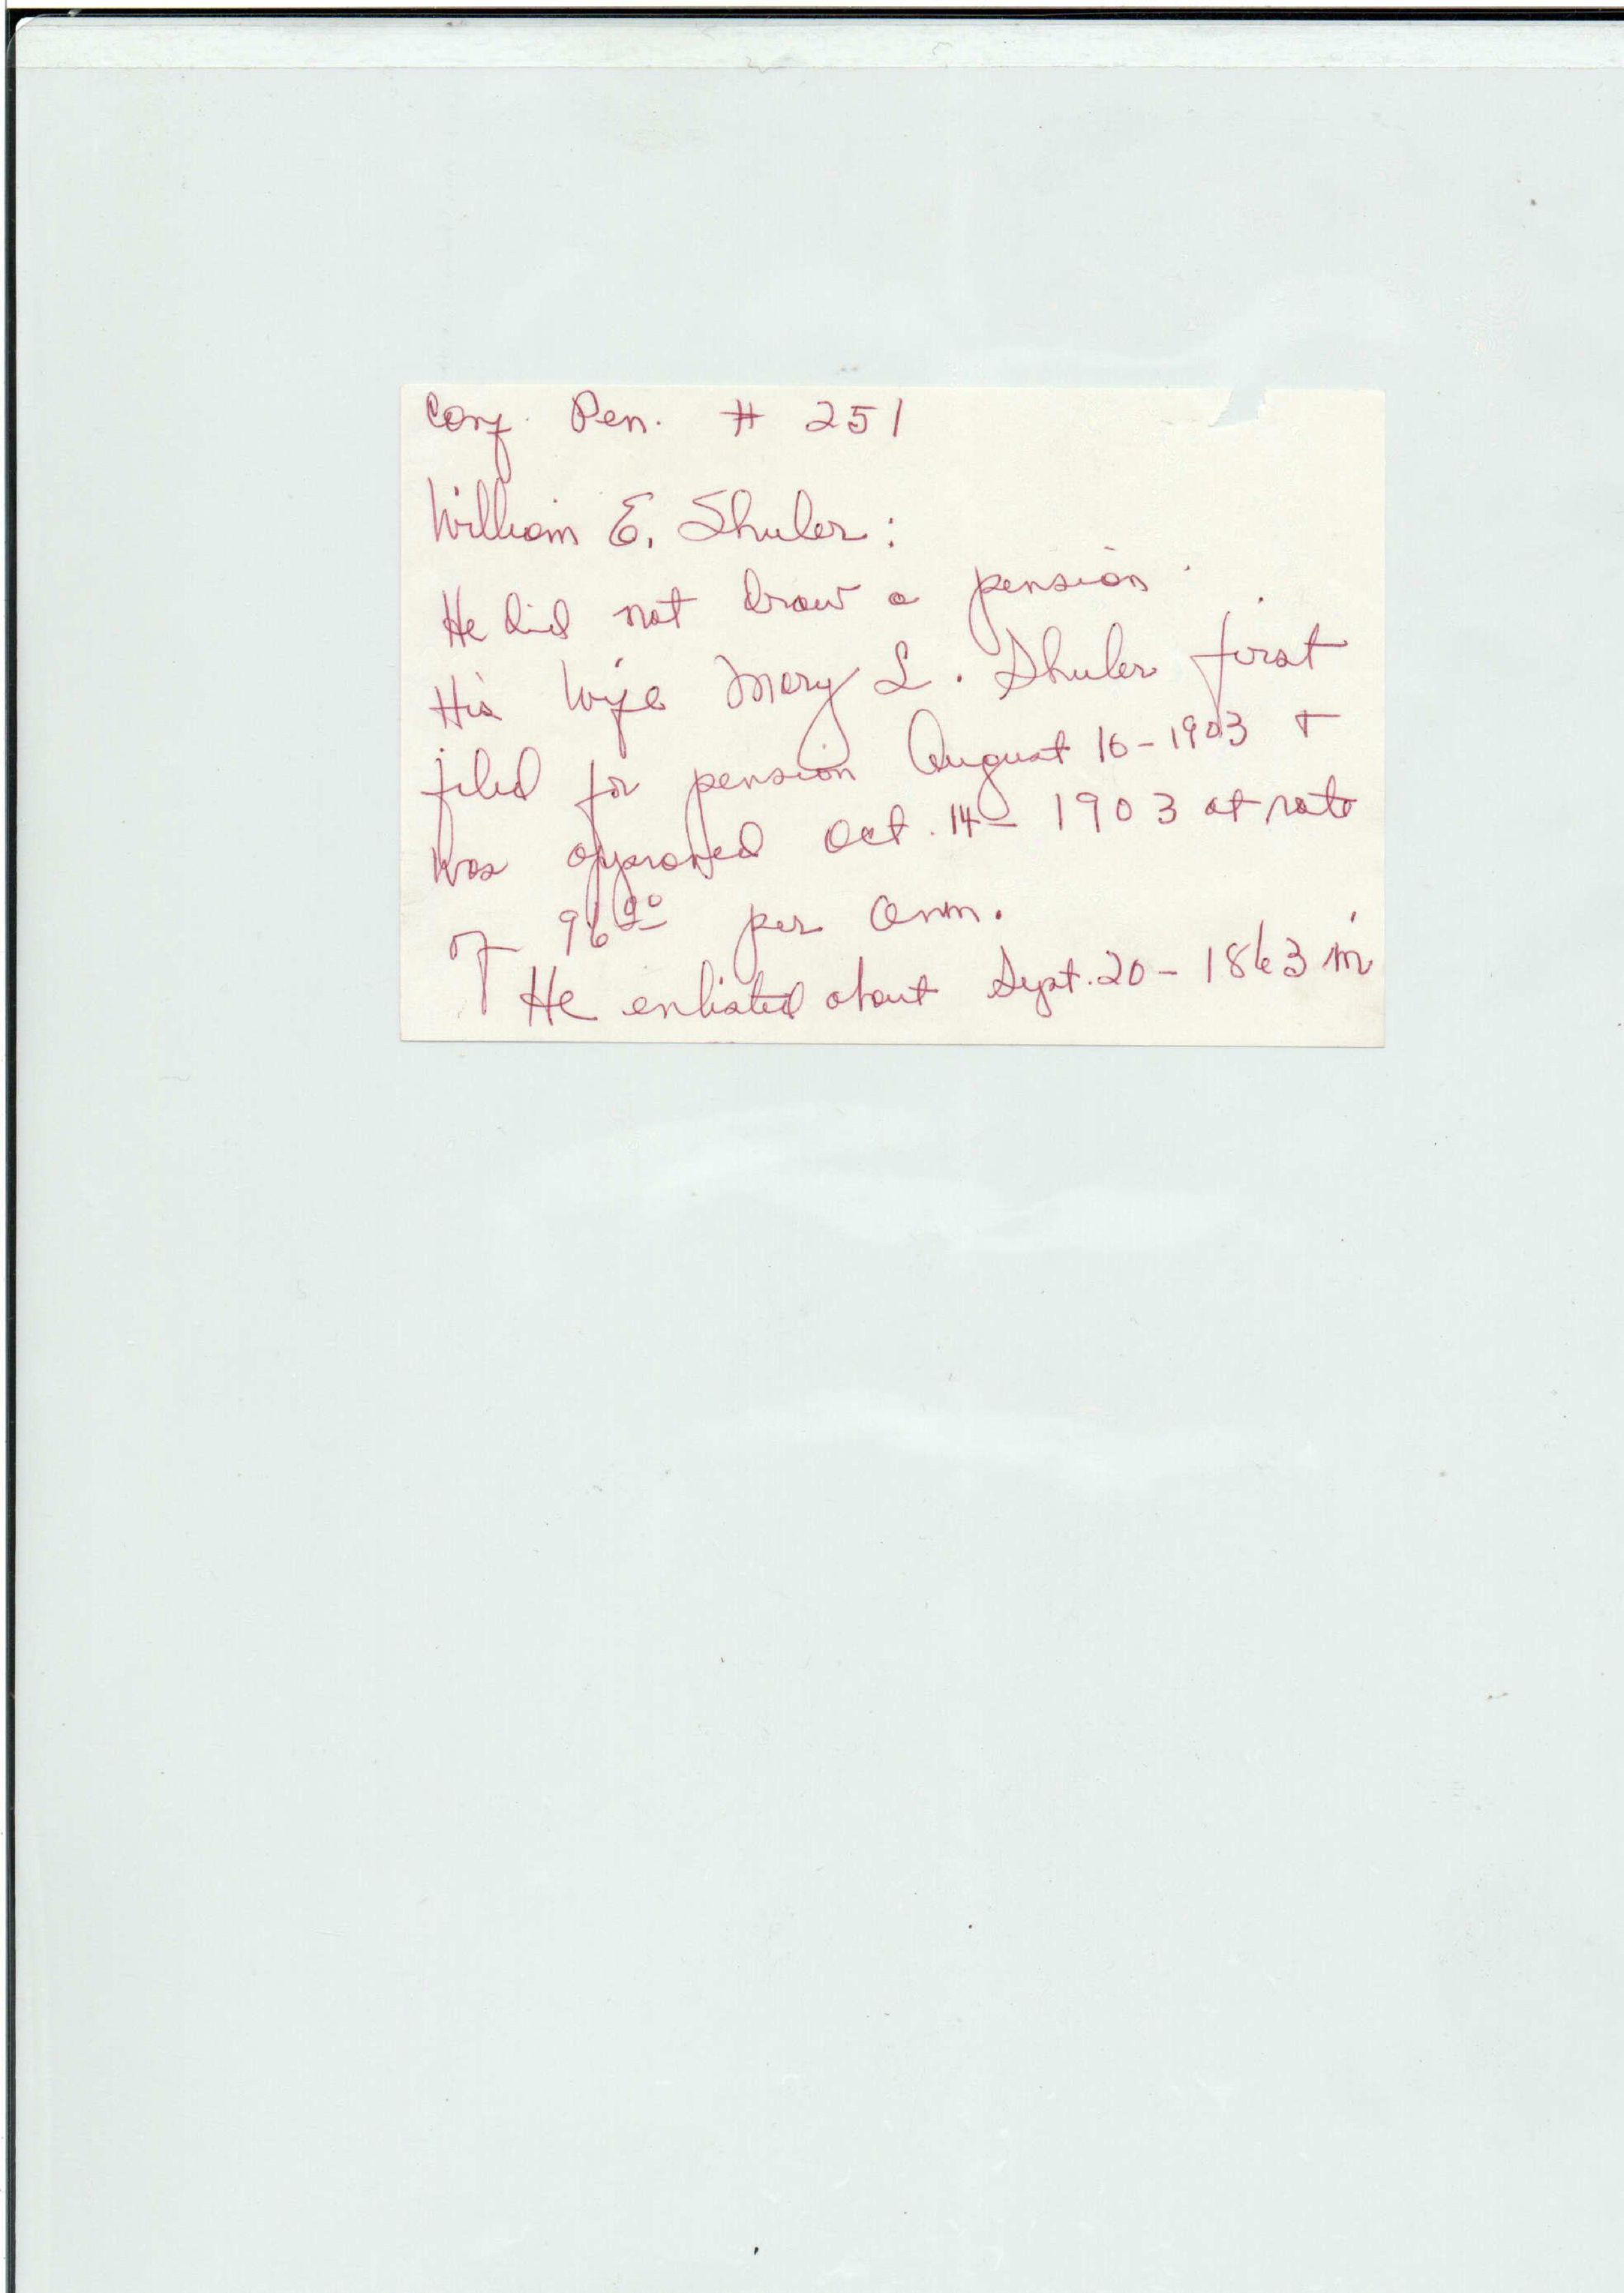 Conf. Pen. # 251
William E. Shuler:
He did not draw a pension.
His wife Mary L. Shuler first
filed for pension August 16-1903 +
was approved Oct. 14- 1903 at rate
of 96 00 per Ann.
He enlisted about Sept. 20- 1863 in